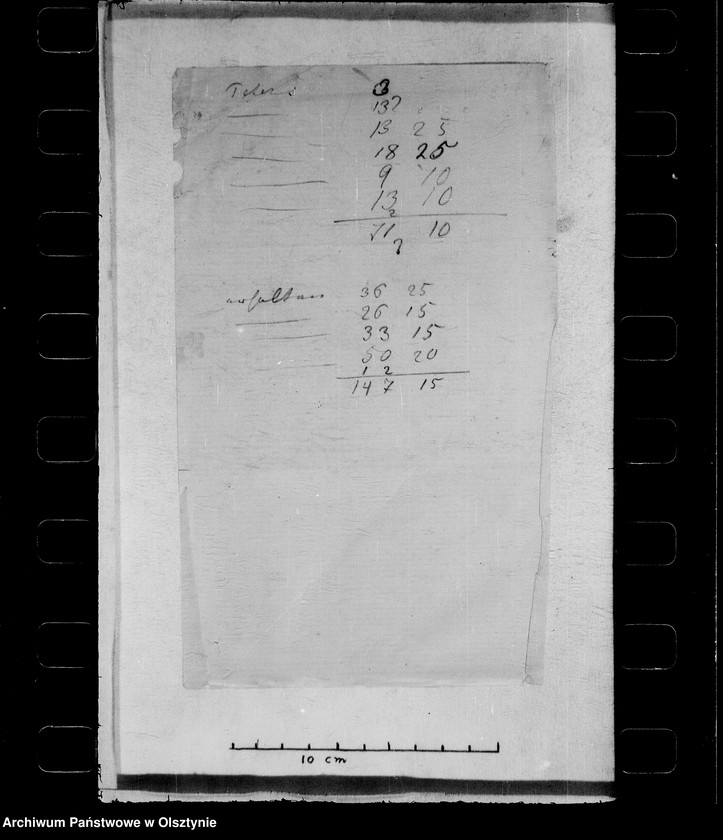 3
13
13 25
18 25
9 10
13 10
2
71 10
erhalten 36 25
26 15
33 15
50 20
1 2
147 15
10 cm
Archiwum Państwowe w Olsztynie